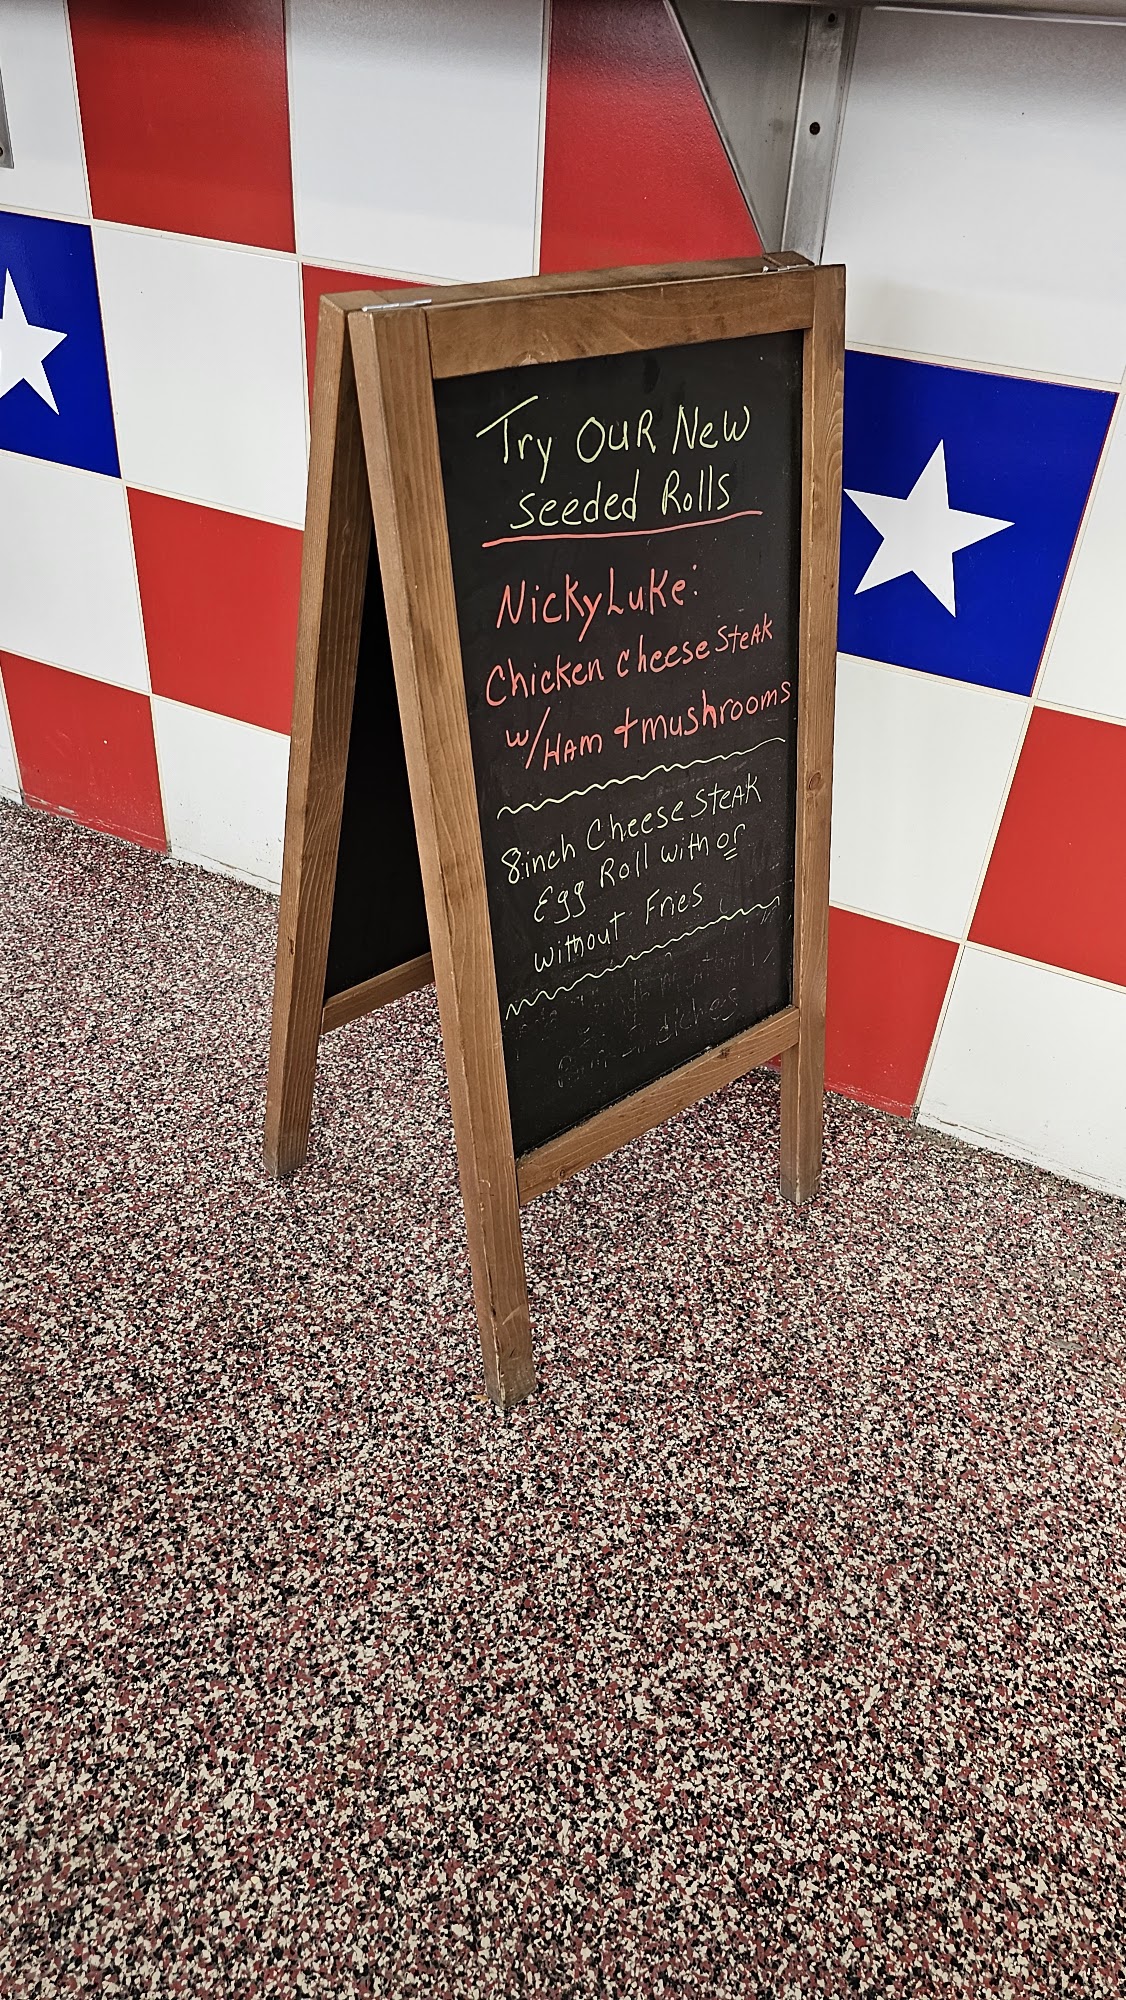 Try OUR New
Seeded Rolls
NickyLuke:
Chicken Cheese SteAK
w/HAm + mushrooms
8inch Cheese SteAK
Egg Roll with or
without Fries